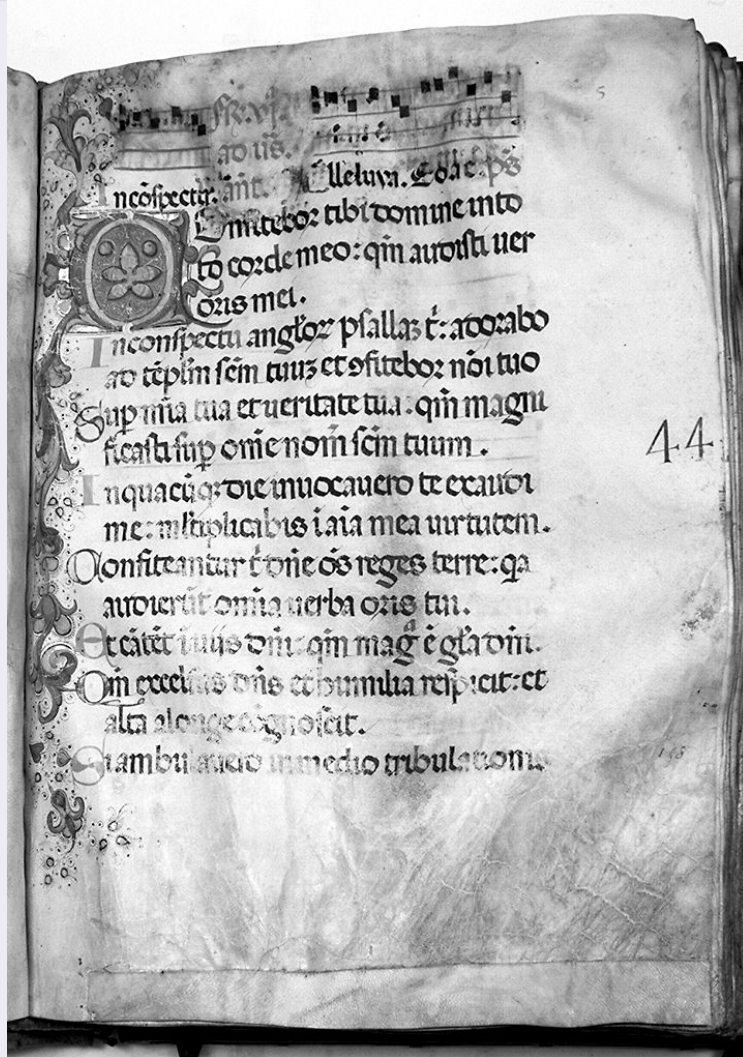 FR. vj.
ad vīs.
Incōspectu. ant. Alleluya. Eoae. ps̄
Confitebor tibi domine in to
to corde meo: qm̄ audisti uer
oris mei.
In conspectu angl̄oꝝ psallaꝫ t̄: adorabo
ad tēplm̄ scm̄ tuuꝫ et ꝯfitebor nōi tuo
Suꝑ mīa tua et ueritate tua: qm̄ magni
ficasti suꝑ om̄e nom̄ scm̄ tuum.
In quacūqꝫ die inuocauero te exaudi
me: ml̄tiplicabis ī aīa mea uirtutem.
Confiteantur t̄ dn̄e ōs reges terre: qa
audierūt omīa uerba oris tui.
Et cātēt ī uijs dn̄i: qm̄ magᵃ ē gl̄a dn̄i.
Qm̄ excelsus dn̄s et humilia respicit: et
alta a longe cognoscit.
Si ambulauero in medio tribulationis
44